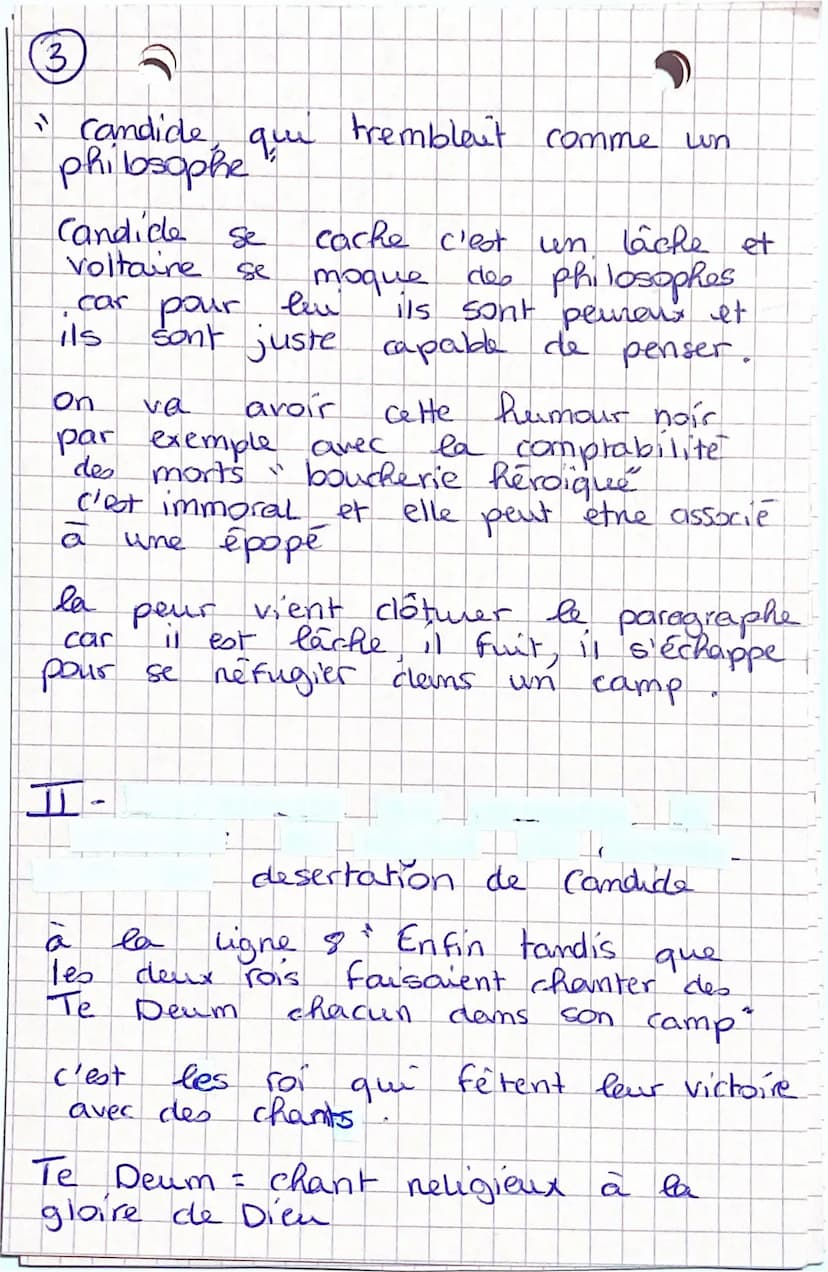 3
" Candide, qui tremblait comme un
philosophe "
Candide se cache c'est un lâche et
Voltaire se moque des philosophes
car pour lui ils sont peureux et
ils sont juste capable de penser.
On va avoir cette humour noir
par exemple avec la comptabilité
des morts " boucherie héroïque"
c'est immoral et elle peut etre associé
à une épopé
la peur vient clôturer le paragraphe
car il est lâche, il fuit, il s'échappe
pour se réfugier dans un camp.
II -
desertation de Candide
à la ligne 8 " Enfin tandis que
les deux rois faisaient chanter des
Te Deum chacun dans son camp"
c'est les roi qui fêtent leur victoire
avec des chants.
Te Deum = chant religieux à la
gloire de Dieu